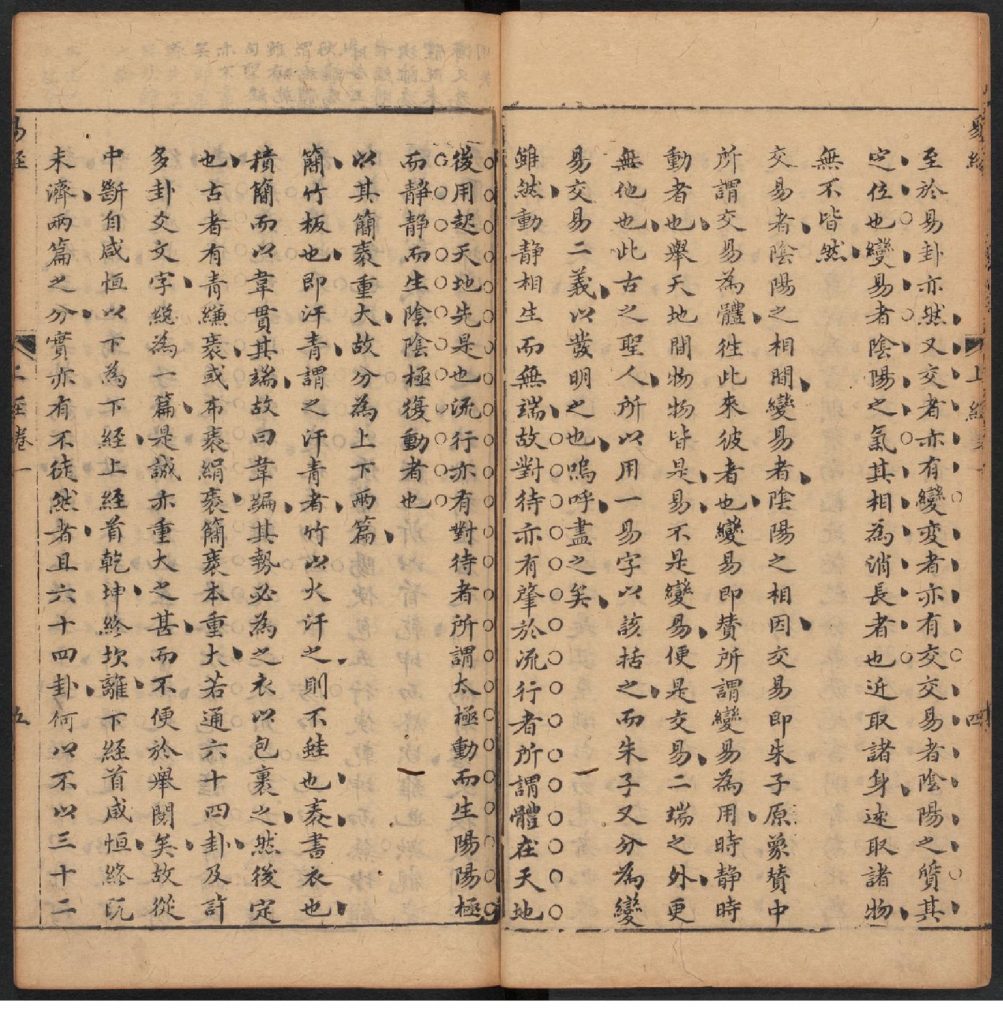 至於易卦亦然又交者亦有變变者亦有交交易者陰陽之質其
定位也變易者陰陽之氣其相為消長者也近取諸身逺取諸物
無不皆然
交易者陰陽之相間變易者陰陽之相因交易即朱子原象賛中
所謂交易為體徃此來彼者也變易即賛所謂變易為用時靜時
動者也舉天地間物皆是易不是變易便是交易二端之外更
無他也此古之聖人所以用一易字以該括之而朱子又分為變
易交易二義以發明之也嗚呼盡之矣
雖然動靜相生而無端故對待亦有肇於流行者所謂體在天地
後用起天地先是也流行亦有對待者所謂太極動而生陽陽極
而静静而生陰陰極復動者也
以其簡袠重大故分為上下兩篇
簡竹板也即汗青謂之汗青者竹以火汗之則不蛀也袠書衣也
積簡而以韋貫其端故曰韋編其勢必為之衣以包裹之然後定
也古者有青縑袠或布袠絹袠簡袠本重大若通六十四卦及許
多卦爻文字緫為一篇是誠亦重大之甚而不便於舉閱矣故從
中斷自咸恒以下為下經上經首乾坤終坎離下經首咸恒終旣
未濟兩篇之分實亦有不徒然者且六十四卦何以不以三十二
易經
上經卷一
四
易經
上經卷一
五